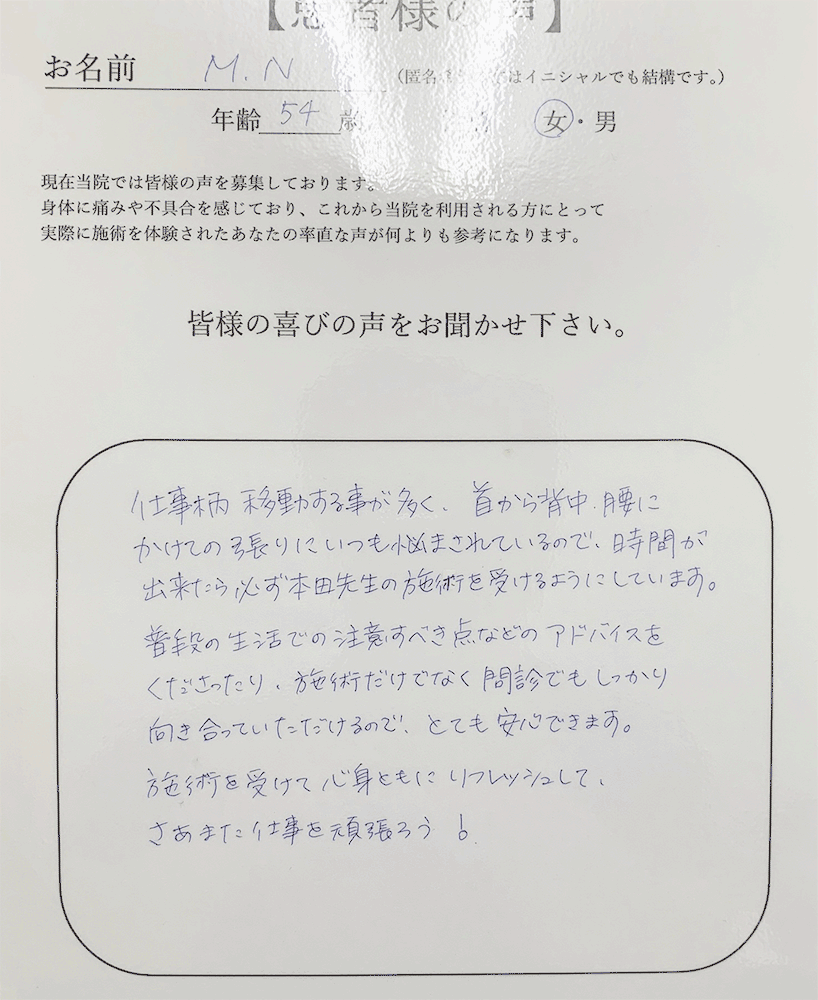 【患者様の声】
お名前 M.N (匿名 ではイニシャルでも結構です。)
年齢 54 歳 女・男
現在当院では皆様の声を募集しております。
身体に痛みや不具合を感じており、これから当院を利用される方にとって
実際に施術を体験されたあなたの率直な声が何よりも参考になります。
皆様の喜びの声をお聞かせ下さい。
仕事柄 移動する事が多く、首から背中、腰に
かけての張りにいつも悩まされているので、時間が
出来たら必ず本田先生の施術を受けるようにしています。
普段の生活での注意すべき点などのアドバイスを
くださったり、施術だけでなく問診でもしっかり
向き合っていただけるので、とても安心できます。
施術を受けて心身ともにリフレッシュして、
さあまた仕事を頑張ろう!